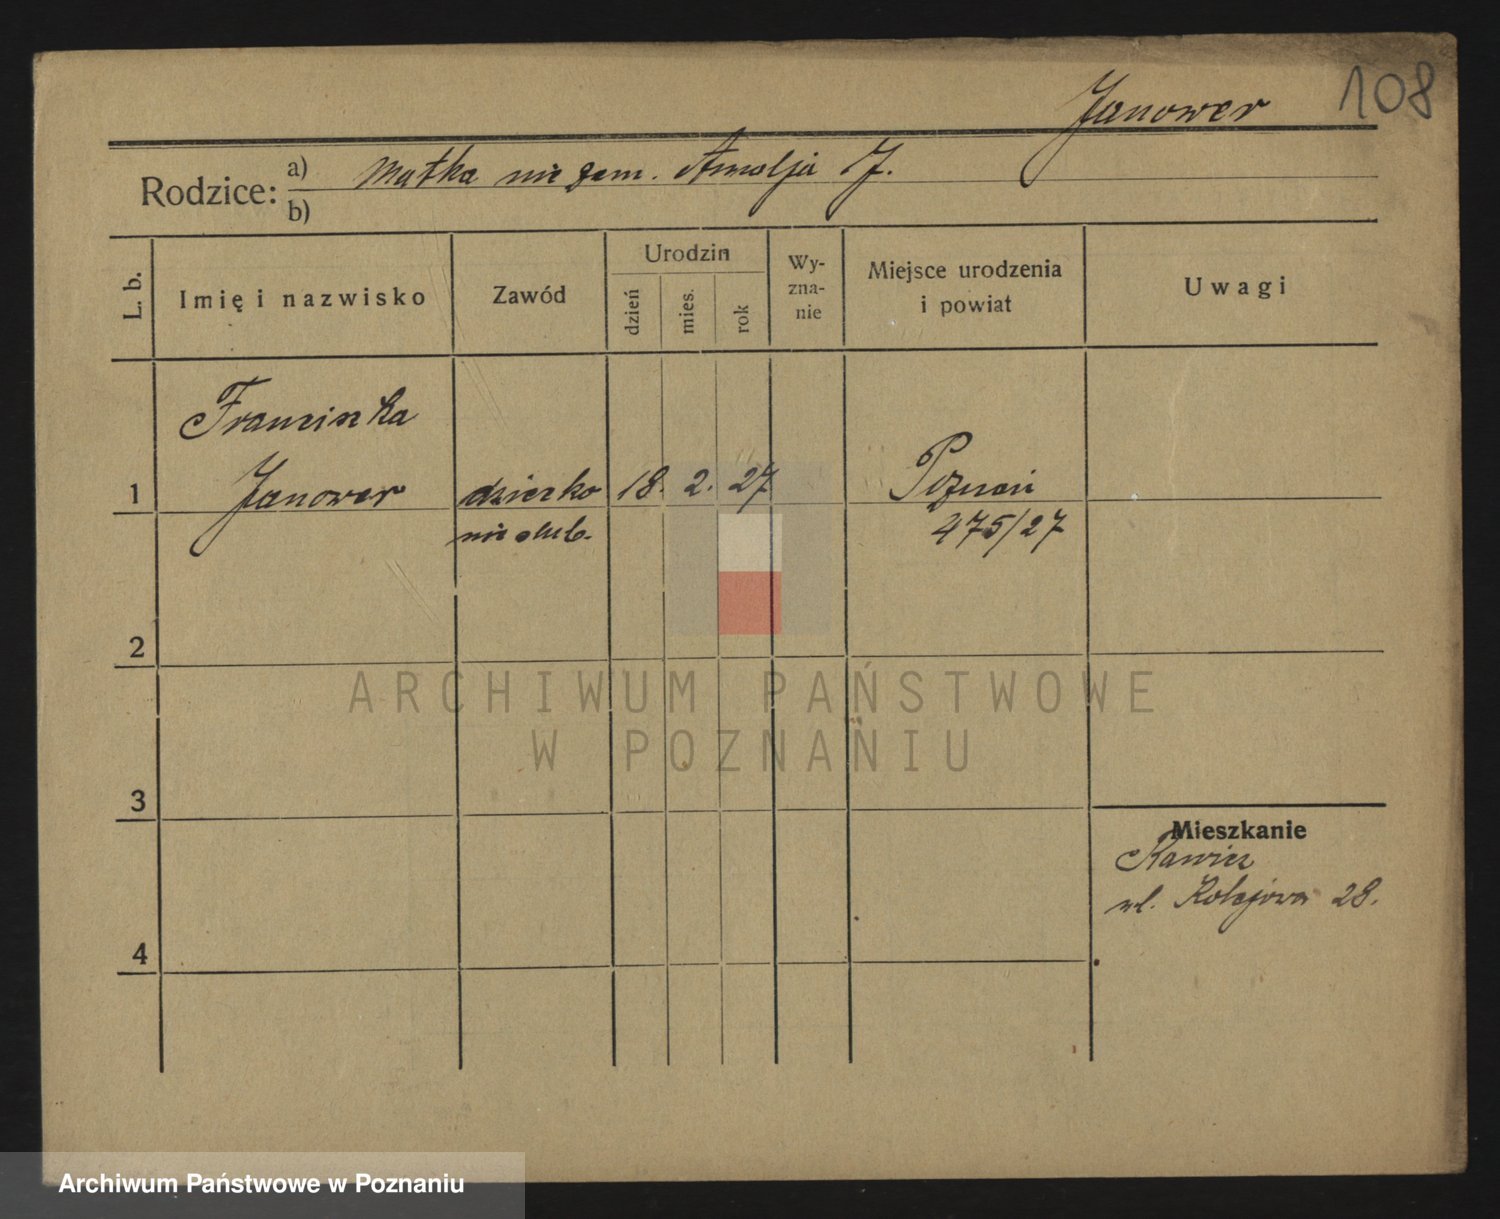 108
Janower
Rodzice: a) Matka niezam. Amalja J.
b)
L. b.
Imię i nazwisko
Zawód
Urodzin
dzień
mies.
rok
Wy-
zna-
nie
Miejsce urodzenia
i powiat
Uwagi
Franciszka
1 Janower dziecko 18. 2. 27 Poznań
nieślub. 475/27
2
3
4
Mieszkanie
Rawicz
ul. Kolejowa 28.
ARCHIWUM PAŃSTWOWE
W POZNANIU
Archiwum Państwowe w Poznaniu